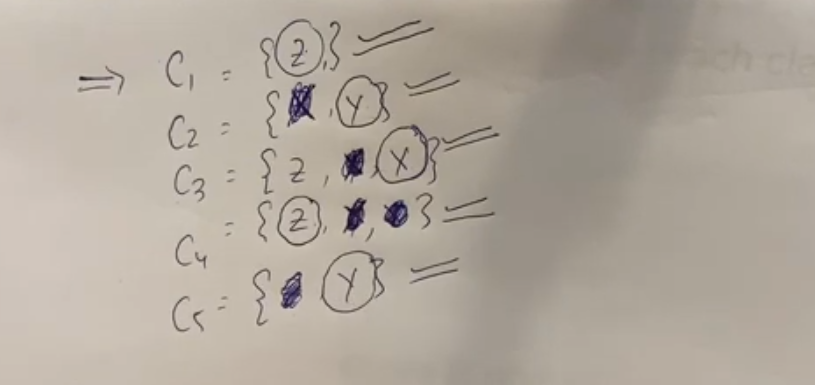 ⇒ C₁ = {Z,}
C₂ = {, Y}
C₃ = {Z, , X}
C₄ = {Z, , }
C₅ = { Y}
ch cla